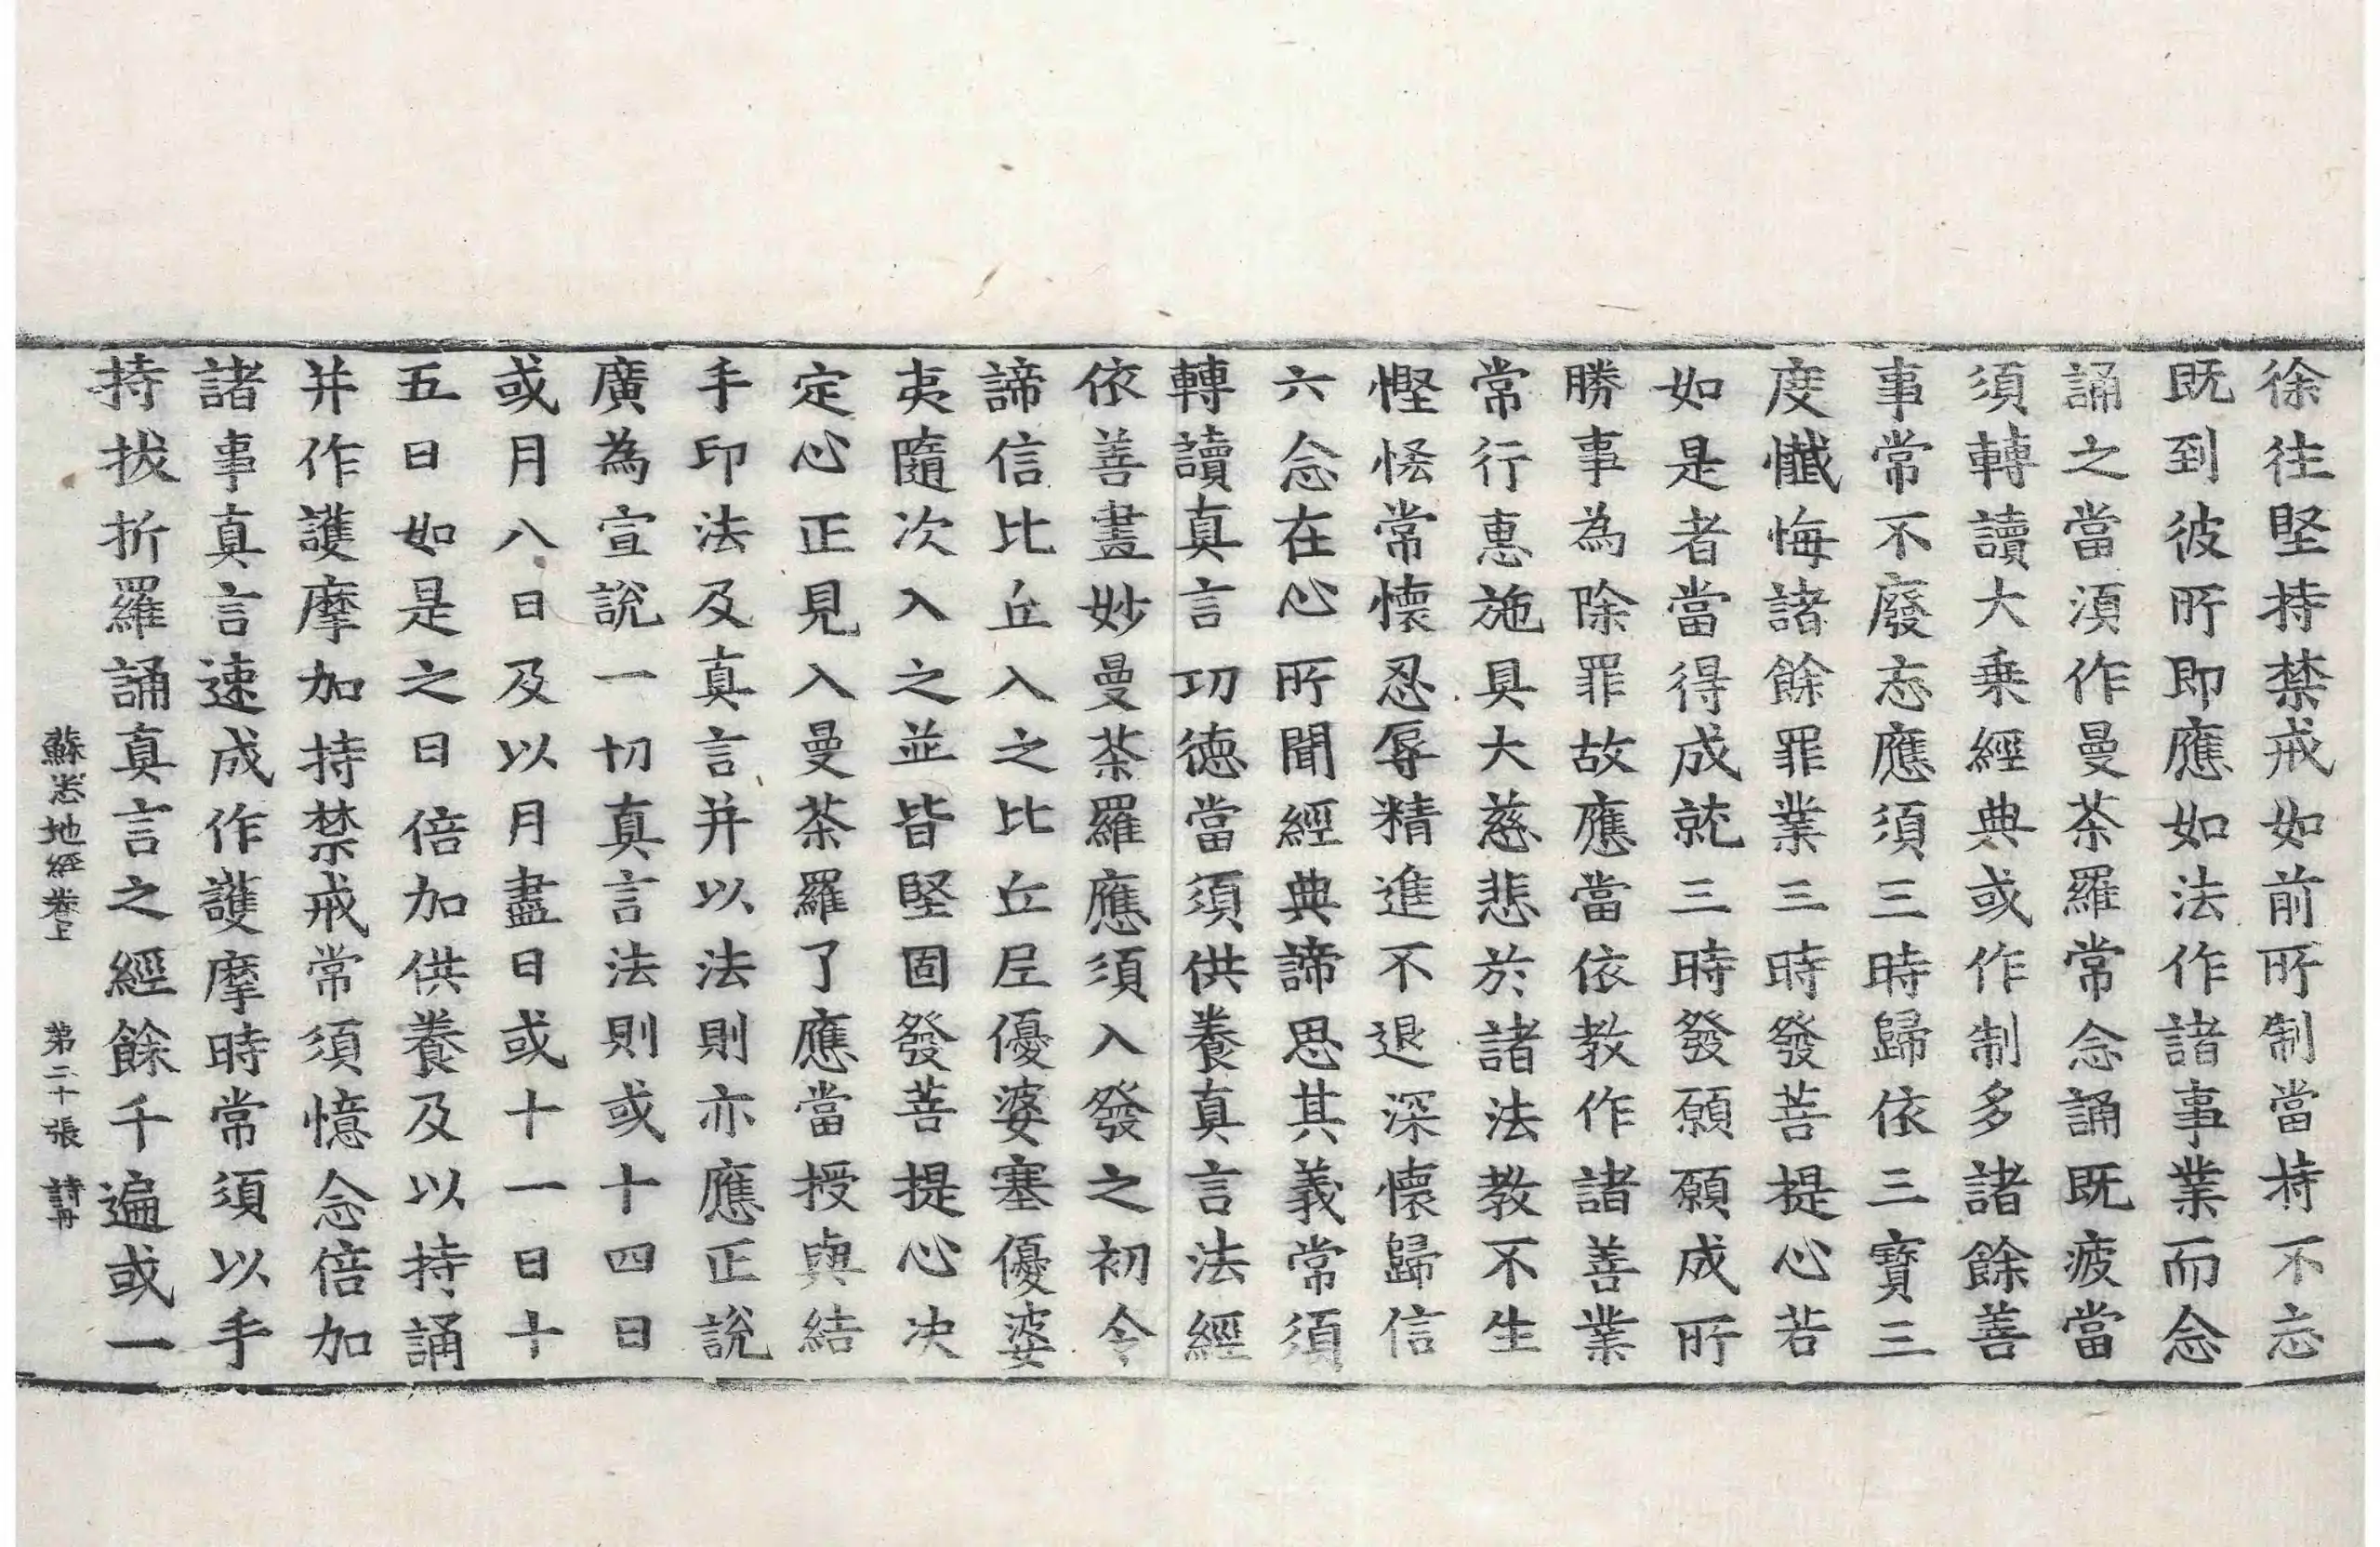 徐往堅持禁戒如前所制當持不忘
既到彼所即應如法作諸事業而念
誦之當須作曼茶羅常念誦既疲當
須轉讀大乗經典或作制多諸餘善
事常不廢忘應須三時歸依三寶三
度懺悔諸餘罪業三時發菩提心若
如是者當得成就三時發願願成所
勝事為除罪故應當依教作諸善業
常行惠施具大慈悲於諸法教不生
慳悋常懷忍辱精進不退深懷歸信
六念在心所聞經典諦思其義常須
轉讀真言功德當須供養真言法經
依善畫妙曼茶羅應須入發之初令
諦信比丘入之比丘尼優婆塞優婆
夷隨次入之並皆堅固發菩提心决
定心正見入曼茶羅了應當授與結
手印法及真言并以法則亦應正說
廣為宣說一切真言法則或十四日
或月八日及以月盡日或十一日十
五日如是之日倍加供養及以持誦
并作護摩加持禁戒常須憶念倍加
諸事真言速成作護摩時常須以手
持拔折羅誦真言之經餘千遍或一
蘇悉地經卷上 第二十張 詩冊